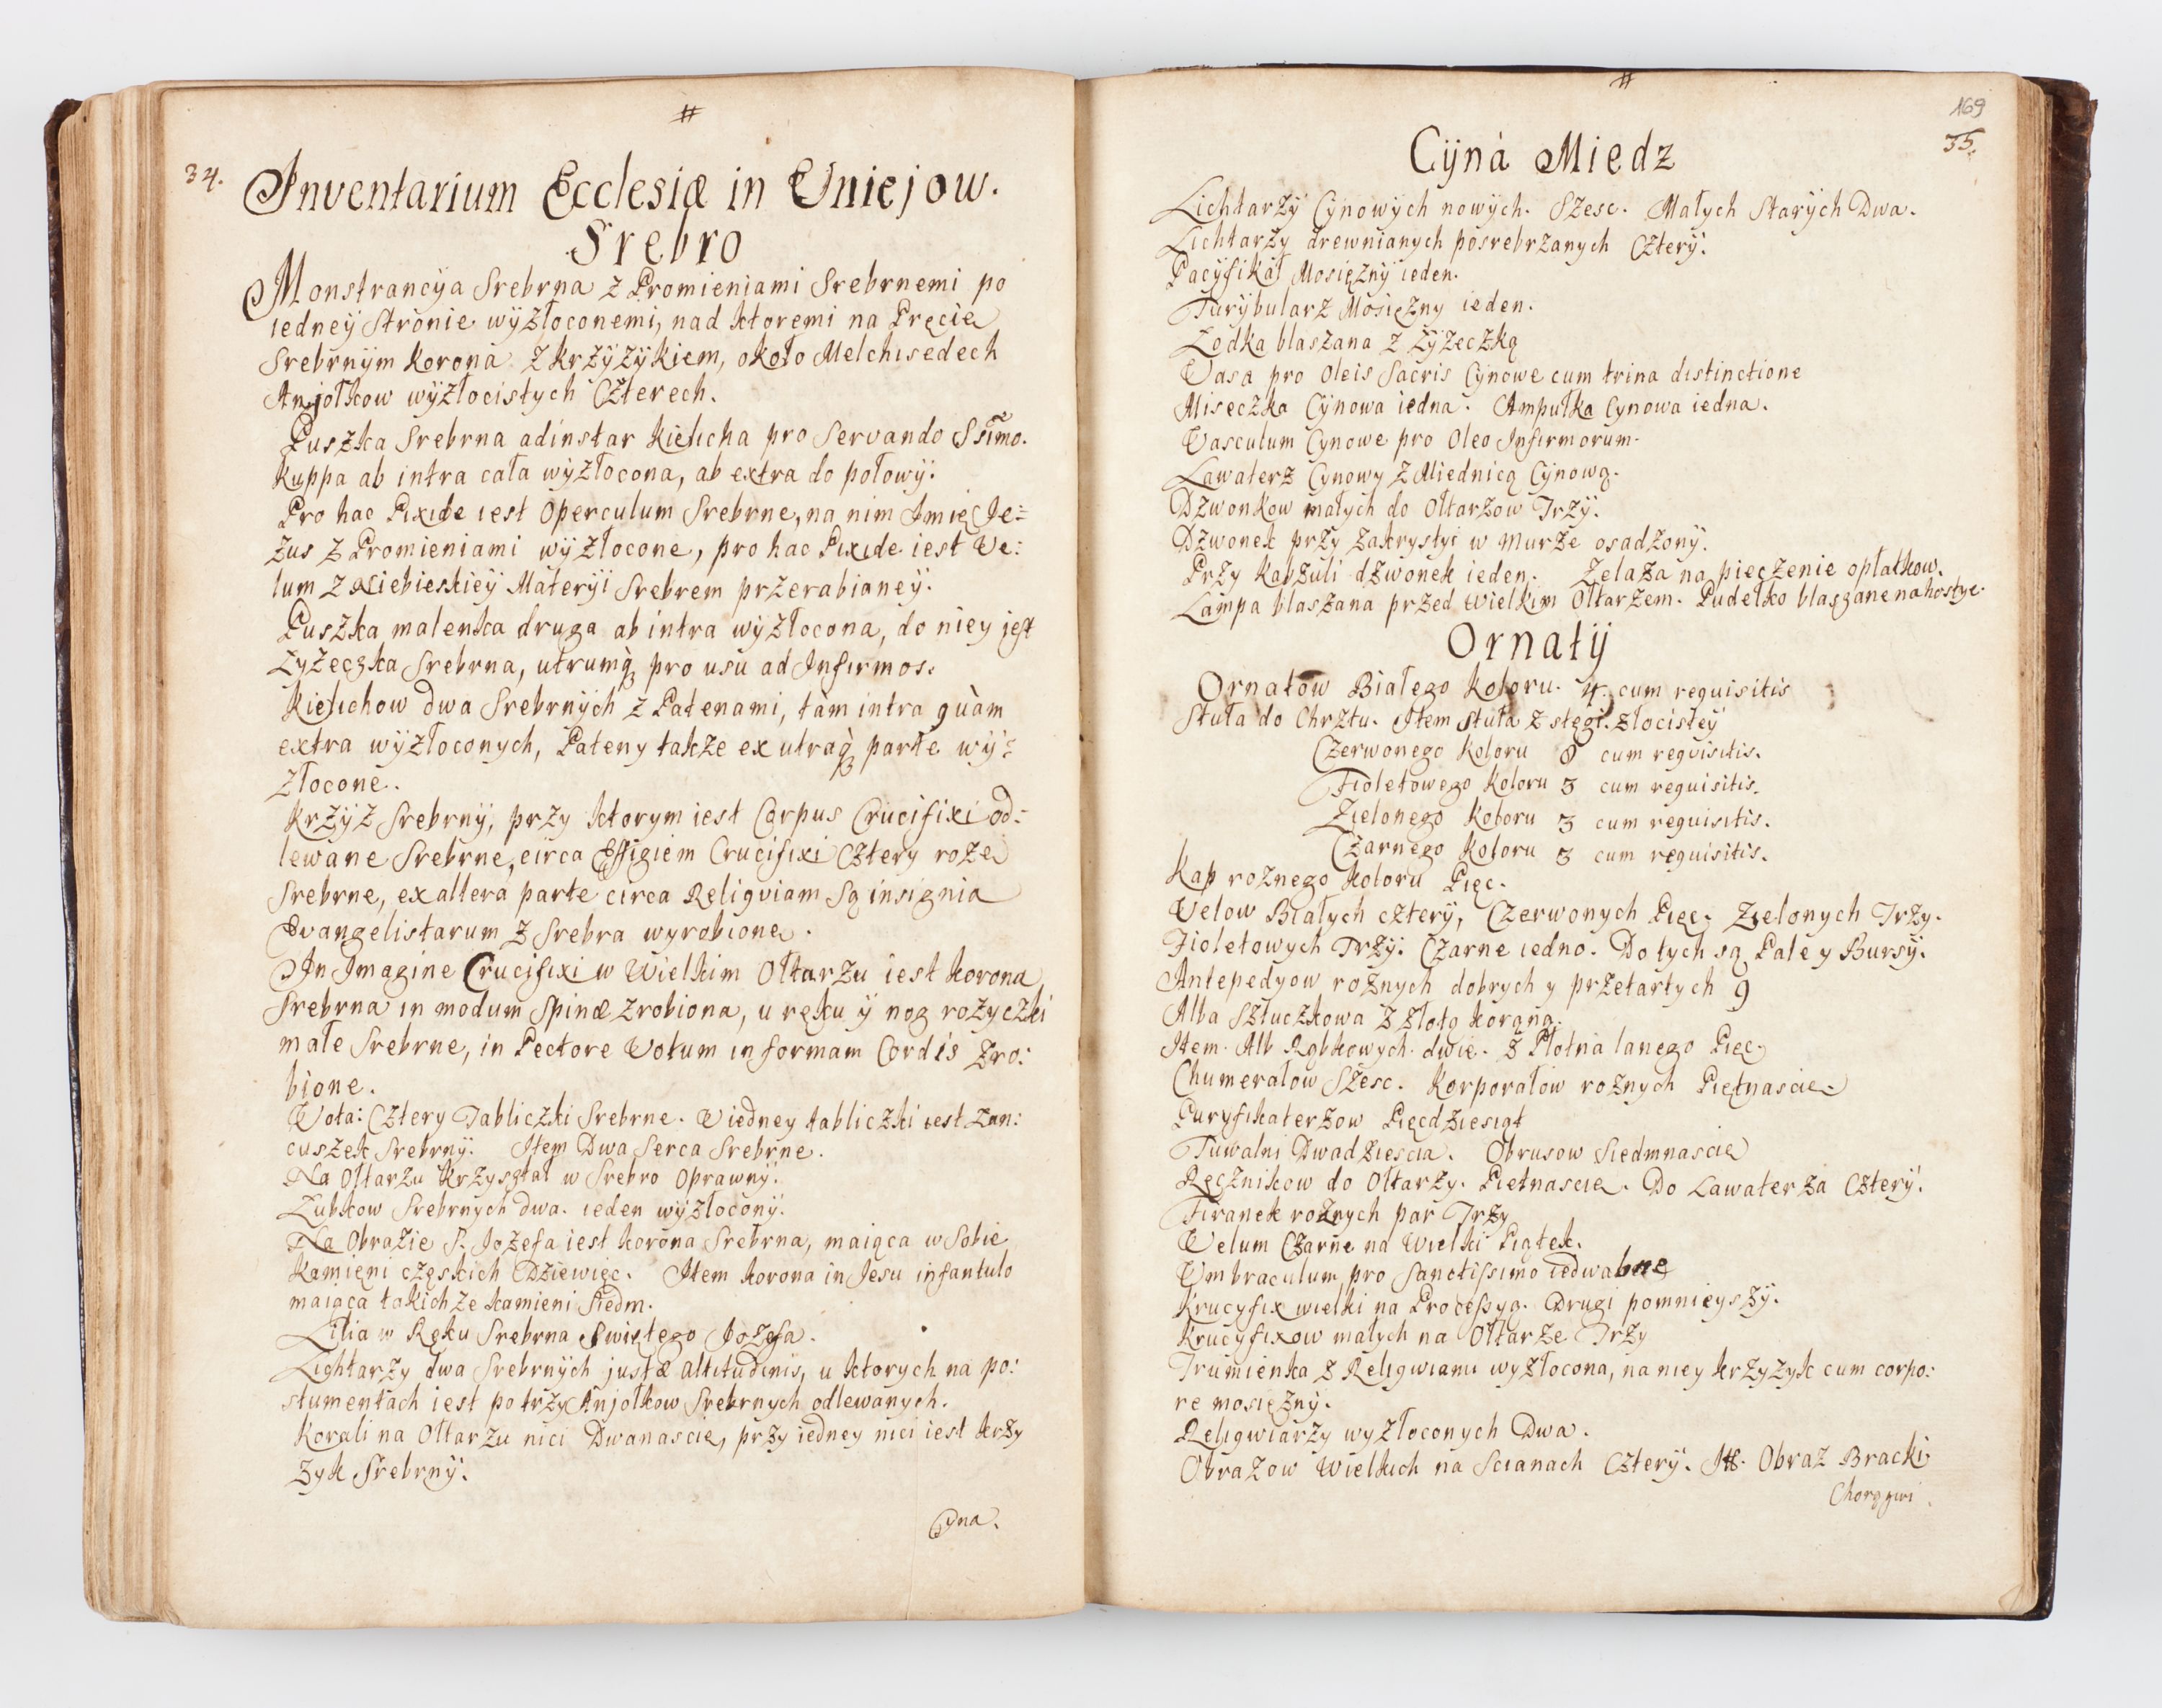 #
34.
Inventarium Ecclesiæ in Uniejow.
Srebro
Monstrancÿa Srebrna z Promieniami Srebrnemi po
iedneÿ Stronie wÿzłoconemi, nad ktoremi na Pręcie
Srebrnÿm korona z krzÿzÿkiem, około Melchisedech
Anjołkow wÿzłocistÿch Czterech.
Puszka Srebrna adinstar kielicha pro Servando Ssimo.
kuppa ab intra cała wÿzłocona, ab extra do połowÿ.
Pro hac Pixide iest Operculum Srebrne, na nim Imię Je=
zus z Promieniami wÿzłocone, pro hac Pixide iest Ve:
lum z Niebieskieÿ Materÿi Srebrem przerabianeÿ.
Puszka malenka druga ab intra wÿzłocona, do niey jest
Łyżeczka Srebrna, utrumq pro usu ad Infirmos.
kielichow dwa Srebrnÿch z Patenami, tàm intra quàm
extra wÿzłoconych, Pateny także ex utraq parte wÿ=
złocone.
krzÿż Srebrnÿ, przy ktorym iest Corpus Crucifixi od:
lewane Srebrne, circa Effigiem Crucifixi Cztery roże
Srebrne, ex altera parte circa Religviam Są insignia
Evangelistarum z Srebra wyrobione.
In Imagine Crucifixi w Wielkim Ołtarzu iest korona
Srebrna in modum Spinæ zrobiona, u ręku ÿ nog rożyczki
małe Srebrne, in Pectore Votum in formam Cordis zro:
bione.
Vota: Cztery Tabliczki Srebrne. U iedney tabliczki iest Łan:
cuszek Srebrnÿ. Item Dwa Serca Srebrne.
Na Ołtarzu krzyształ w Srebro Oprawnÿ.
Łubkow Srebrnÿch dwa. ieden wÿzłoconÿ.
Na Obrazie S. Jozefa iest korona Srebrna, maiąca w Sobie
kamięni częskich Dziewięc. Item korona in Jesu infantulo
maiąca takichże kamieni Siedm.
Lilia w Ręku Srebrna Swiętego Jozefa.
Lichtarzy dwa Srebrnÿch justæ altitudinis, u ktorych na po:
stumentach iest po trzy Anjołkow Srebrnych odlewanych.
Korali na Ołtarzu nici Dwanascie, przy iedney nici iest krzy
zyk Srebrnÿ.
Cyna.
#
169
35.
Cÿnà Miedz
Lichtarzÿ Cÿnowÿch nowÿch. Szesc. Małych Starÿch Dwa.
Lichtarzy drewnianych posrebrzanych Czterÿ.
Pacÿfikał Mosiężnÿ ieden.
Turÿbularz Mosiężny ieden.
Łodka blaszana z Łÿżeczką
Vasa pro Oleis Sacris Cÿnowe cum trina distinctione
Miseczka Cÿnowa iedna. Ampułka Cynowa iedna.
Vasculum Cynowe pro Oleo Infirmorum.
Lawaterz Cynowy z Miednicą Cÿnową.
Dzwonkow małych do Ołtarzow Trzÿ.
Dzwonek przy Zakrystyi w Murze osadzonÿ.
Przy kapzuli dzwonek ieden. Zelaza na pieczenie opłatkow.
Lampa blaszana przed Wielkim Ołtarzem. Pudełko blaszane na hostye.
Ornatÿ
Ornatow Białego koloru. 4. cum requisitis
Stuła do Chrztu. Item Stuła z stęgi złocisteÿ
Czerwonego koloru cum reqvisitis.
Fioletowego koloru 3 cum requisitis.
Zielonego koloru 3 cum requisitis.
Czarnego koloru 3 cum requisitis.
kap rożnego koloru Pięc.
Velow Białych czterÿ, Czerwonych Pięc. Zielonych Trzy.
Fioletowych Trzÿ. Czarne iedno. Do tych są Pale y Bursÿ.
Antepedyow rożnych dobrych y przetartych 9
Alba Sztuczkowa z złotą koroną.
Item. Alb Rąbkowych. dwie. z Płotna lanego Pięc.
Chumerałow Szesc. Korporałow rożnych Piętnascie.
Puryfikaterzow Pięcdziesiąt
Tuwalni Dwadziescia. Obrusow Siedmnascie
Ręcznikow do Ołtarzy. Piętnascie. Do Lawaterza Czterÿ.
Firanek rożnych par Trzy
Velum Czarne na Wielki Piątek.
Umbraculum pro Sanctissimo iedwabne
krucyfix wielki na Processyą. Drugi pomnieyszÿ.
krucyfixow małych na Ołtarze Trzy
Trumienka z Religwiami wyzłocona, na niey krzyzyk cum corpo:
re mosiężnÿ.
Religwiarzy wyzłoconych Dwa.
Obrazow Wielkich na Scianach Czterÿ. Obraz Bracki
Chorągwi